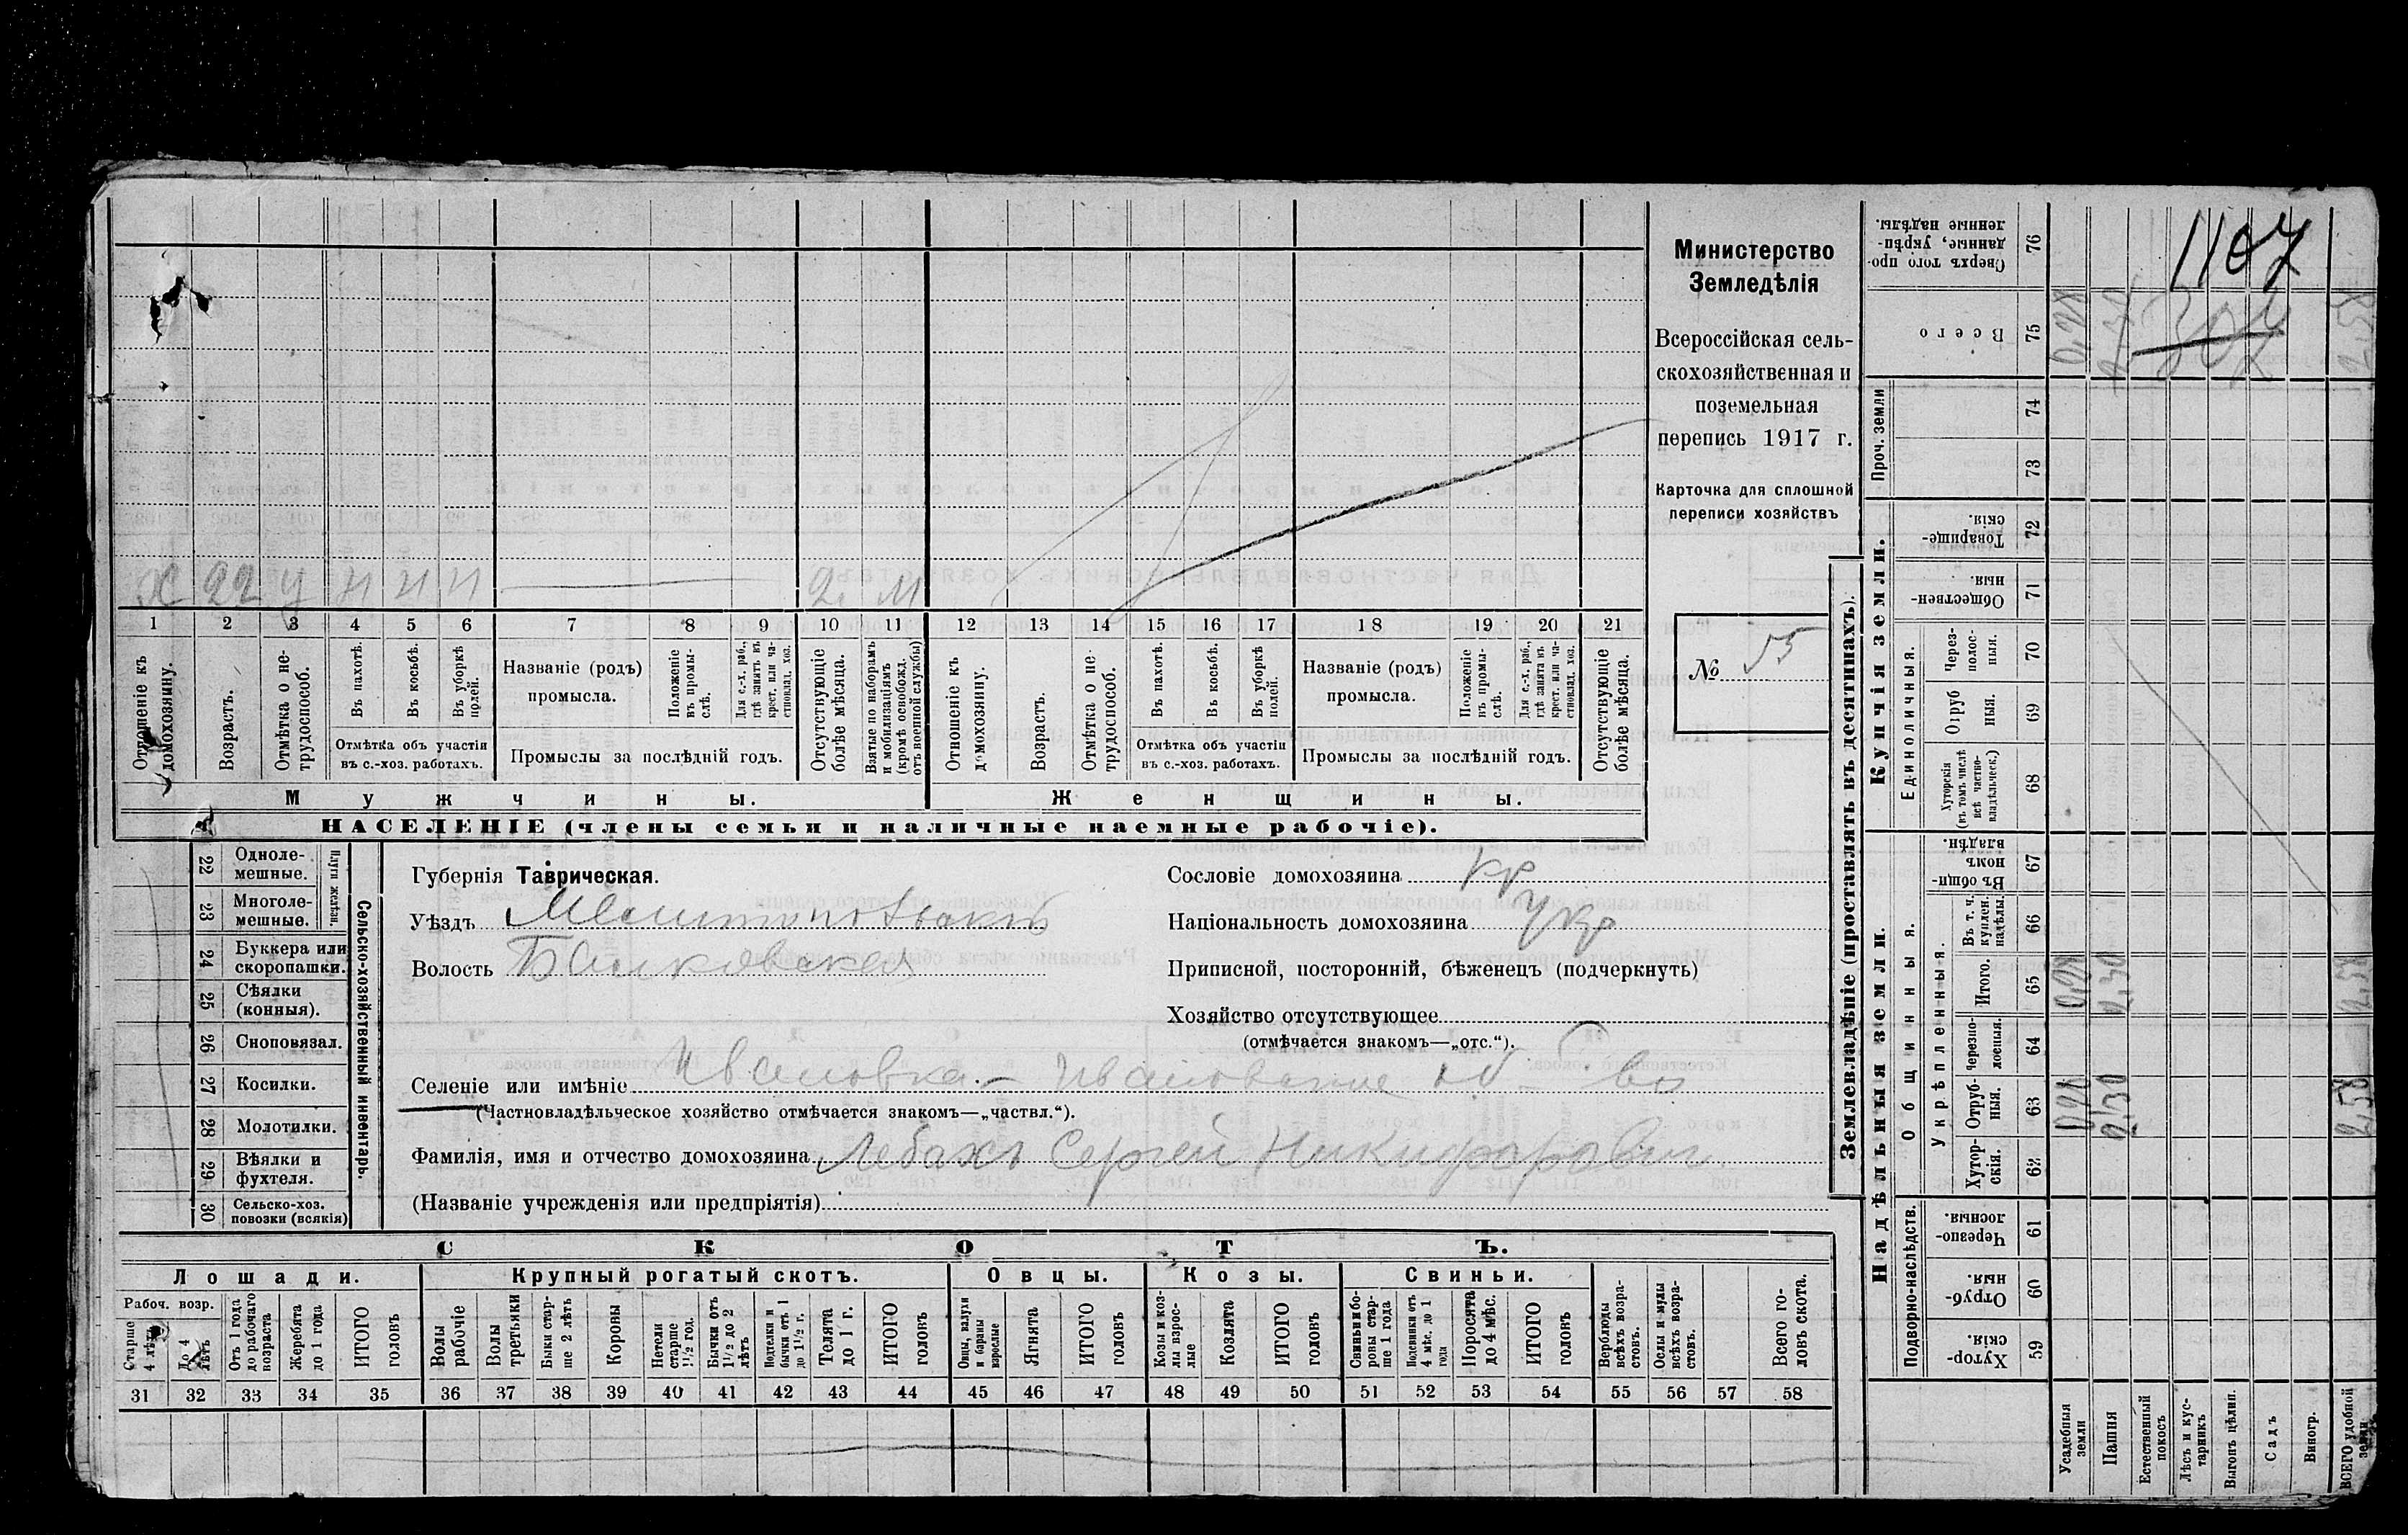 Министерство
Земледѣлія
Всероссійская сель-
скохозяйственная и
поземельная
перепись 1917 г.
Карточка для сплошной
переписи хозяйствъ
№ 55
Х 22 У Н Н Н 2. М
1 2 3 4 5 6 7 8 9 10 11 12 13 14 15 16 17 18 19 20 21
Отношеніе къ домохозяину.
Возрастъ.
Отмѣтка о не-трудоспособ.
Въ пахотѣ.
Въ косьбѣ.
Въ уборкѣ полей.
Отмѣтка объ участіи въ с.-хоз. работахъ.
Названіе (родъ) промысла.
Положеніе въ промы-слѣ.
Для с.-х. раб., гдѣ занятъ въ крест. или ча-стновлад. хоз.
Промыслы за послѣдній годъ.
Отсутствующіе болѣе мѣсяца.
Взятые по наборамъ и мобилизаціямъ (кромѣ освобожд. отъ военной службы)
Отношеніе къ домохозяину.
Возрастъ.
Отмѣтка о не-трудоспособ.
Въ пахотѣ.
Въ косьбѣ.
Въ уборкѣ полей.
Отмѣтка объ участіи въ с.-хоз. работахъ.
Названіе (родъ) промысла.
Положеніе въ промы-слѣ.
Для с.-х. раб., гдѣ занята въ крест. или ча-стновлад. хоз.
Промыслы за послѣдній годъ.
Отсутствующіе болѣе мѣсяца.
Мужчины. Женщины.
НАСЕЛЕНІЕ (члены семьи и наличные наемные рабочіе).
22 Одноле-мешные.
23 Многоле-мешные.
Плуги желѣзн.
24 Буккера или скоропашки.
25 Сѣялки (конныя).
26 Сноповязал.
27 Косилки.
28 Молотилки.
29 Вѣялки и фухтеля.
30 Сельско-хоз. повозки (всякія)
Сельско-хозяйственный инвентарь.
Губернія Таврическая.
Уѣздъ Мелитопольскій
Волость Балковская
Сословіе домохозяина кр
Національность домохозяина Укр
Приписной, посторонній, бѣженецъ (подчеркнуть)
Хозяйство отсутствующее
(отмѣчается знакомъ—„отс.“).
Селеніе или имѣніе Ивановка – Ивановское об – во
(Частновладѣльческое хозяйство отмѣчается знакомъ—„частвл.“).
Фамилія, имя и отчество домохозяина Лебахъ Сергей Никифорович
(Названіе учрежденія или предпріятія)
СКОТЪ.
Лошади. Крупный рогатый скотъ. Овцы. Козы. Свиньи.
Рабоч. возр.
Старше 4 лѣтъ
До 4 лѣтъ
Отъ 1 года до рабочаго возраста
Жеребята до 1 года
ИТОГО головъ
Волы рабочіе
Волы третьяки
Быки стар-ше 2 лѣтъ
Коровы
Нетели старше 1½ год.
Бычки отъ 1½ до 2 лѣтъ
Подтелки и бычки отъ 1 до 1½ г.
Телята до 1 г.
ИТОГО головъ
Овцы, валухи и бараны взрослые
Ягнята
ИТОГО головъ
Козы и коз-лы взрос-лые
Козлята
ИТОГО головъ
Свиньи и бо-ровы стар-ше 1 года
Подсвинки отъ 4 мѣс. до 1 года
Поросята до 4 мѣс.
ИТОГО головъ
Верблюды всѣхъ возра-стовъ.
Ослы и мулы всѣхъ возра-стовъ.
Всего го-ловъ скота.
31 32 33 34 35 36 37 38 39 40 41 42 43 44 45 46 47 48 49 50 51 52 53 54 55 56 57 58
Землевладѣніе (проставлять въ десятинахъ).
1107
Сверхъ того про-данные, укрѣп-ленные надѣлы. 76
Всего 75 0,28 2,30 2,58
Купчія земли.
Проч. земли 74
73
Товарище-скія. 72
Обществен-ныя. 71
Единоличныя.
Через-полос-ныя. 70
Отруб-ныя. 69
Хуторскія (въ томъ числѣ всѣ частно-владѣльческ.) 68
Надѣльныя земли.
Общинныя.
Въ общи-номъ владѣн. 67
Укрѣпленныя.
Въ т. ч. куплен. надѣлы. 66
Итого. 65 0,28 2,30 2,58
Черезпо-лосныя. 64
Отруб-ныя. 63 0,28 2,30 2,58
Хутор-скія. 62
Подворно-наслѣдств.
Черезпо-лосныя. 61
Отруб-ныя. 60
Хутор-скія. 59
Усадебныя земли
Пашня
Естественный покосъ
Лѣсъ и кус-тарникъ
Выгонъ цѣлин.
Садъ
Виногр.
ВСЕГО удобной земли